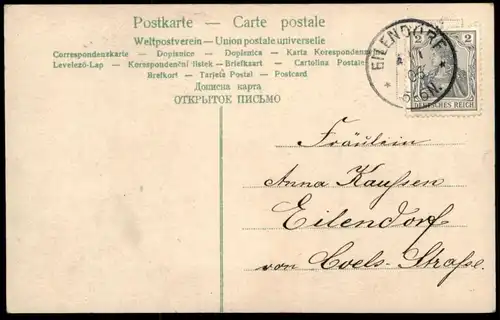 Postkarte — Carte postale
Weltpostverein – Union postale universelle
Correspondenzkarte – Dopisnice – Dopisnica – Karta Korespondency
Levelező-Lap – Korespondenční listek – Briefkaart – Cartolina Postale
Brefkort – Tarjeta Postal – Postcard
Дописна карта
ОТКРЫТОЕ ПИСЬМО
EILENDORF
2 2
DEUTSCHES REICH
Fräulein
Anna Kauhsen
Eilendorf
von Coels-Straße.